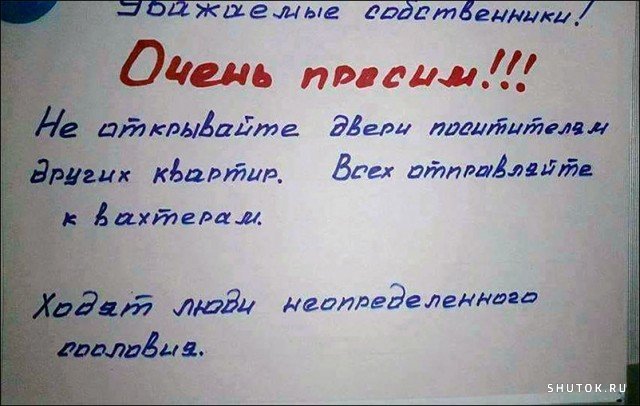 Уважаемые собственники!
Очень просим!!!
Не открывайте двери поситителям
других квартир. Всех отправляйте
к вахтерам.
Ходят люди неопределенного
сословия.
SHUTOK.RU